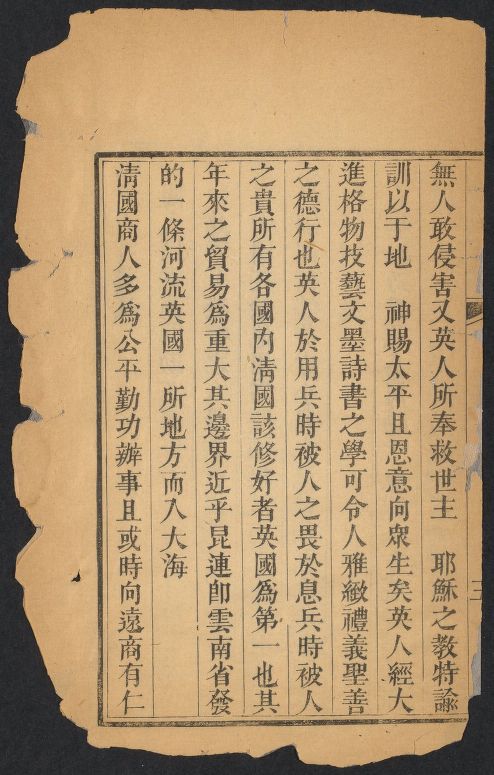 無人敢侵害又英人所奉救世主　耶穌之教特諭
訓以于地　神賜太平且恩意向衆生矣英人經大
進格物技藝文墨詩書之學可令人雅緻禮義聖善
之德行也英人於用兵時被人之畏於息兵時被人
之貴所有各國內淸國該修好者英國爲第一也其
年來之貿易爲重大其邊界近乎昆連卽雲南省發
的一條河流英國一所地方而入大海
淸國商人多爲公平勤功辦事且或時向遠商有仁